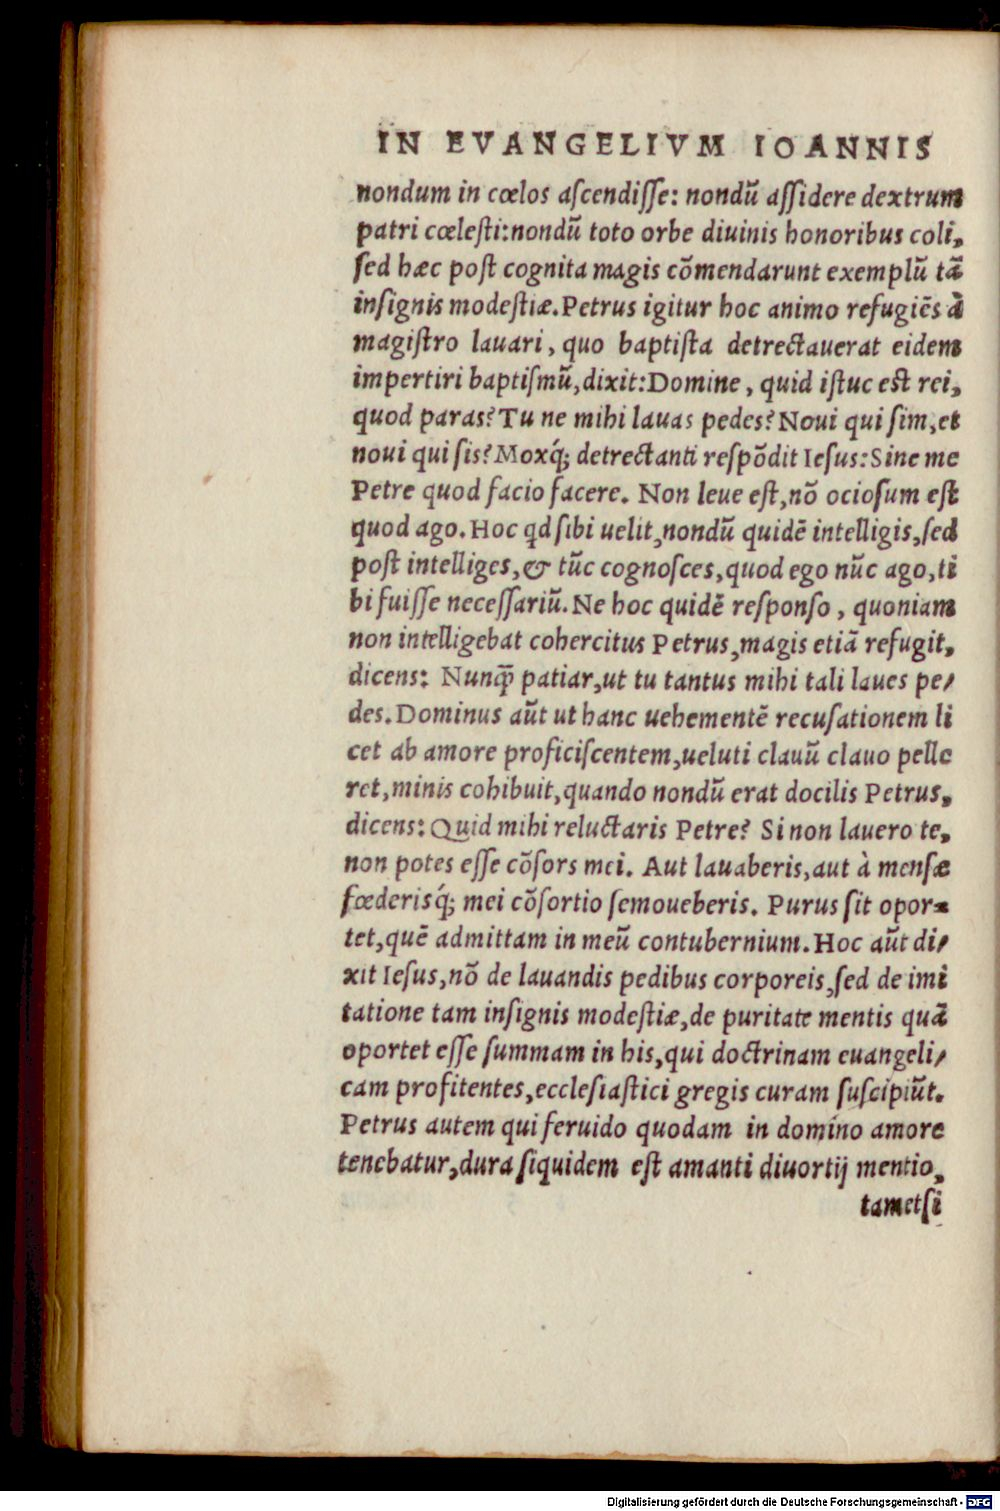 IN EVANGELIVM IOANNIS
nondum in cœlos aſcendiſſe: nondũ aſſidere dextrum
patri cœleſti: nondũ toto orbe diuinis honoribus coli,
ſed hæc poſt cognita magis cõmendarunt exemplũ tã
inſignis modeſtiæ. Petrus igitur hoc animo refugiẽs à
magiſtro lauari, quo baptiſta detrectauerat eidem
impertiri baptiſmũ, dixit: Domine, quid iſtuc eſt rei,
quod paras? Tu ne mihi lauas pedes? Noui qui ſim, et
noui qui ſis? Moxq́; detrectanti reſpõdit Ieſus: Sine me
Petre quod facio facere. Non leue eſt, nõ ocioſum eſt
quod ago. Hoc qd ſibi uelit, nondũ quidẽ intelligis, ſed
poſt intelliges, & tũc cognoſces, quod ego nũc ago, ti
bi fuiſſe neceſſariũ. Ne hoc quidẽ reſponſo, quoniam
non intelligebat cohercitus Petrus, magis etiã refugit,
dicens: Nunq̃ patiar, ut tu tantus mihi tali laues pe/
des. Dominus aũt ut hanc uehementẽ recuſationem li
cet ab amore proficiſcentem, ueluti clauũ clauo pelle
ret, minis cohibuit, quando nondũ erat docilis Petrus,
dicens: Quid mihi reluctaris Petre? Si non lauero te,
non potes eſſe cõſors mei. Aut lauaberis, aut à menſæ
fœderisq́; mei cõſortio ſemoueberis. Purus ſit opor-
tet, quẽ admittam in meũ contubernium. Hoc aũt di/
xit Ieſus, nõ de lauandis pedibus corporeis, ſed de imi
tatione tam inſignis modeſtiæ, de puritate mentis quã
oportet eſſe ſummam in his, qui doctrinam euangeli/
cam profitentes, eccleſiaſtici gregis curam ſuſcipiũt.
Petrus autem qui feruido quodam in domino amore
tenebatur, dura ſiquidem eſt amanti diuortij mentio,
tametſi
Digitalisierung gefördert durch die Deutsche Forschungsgemeinschaft - DFG